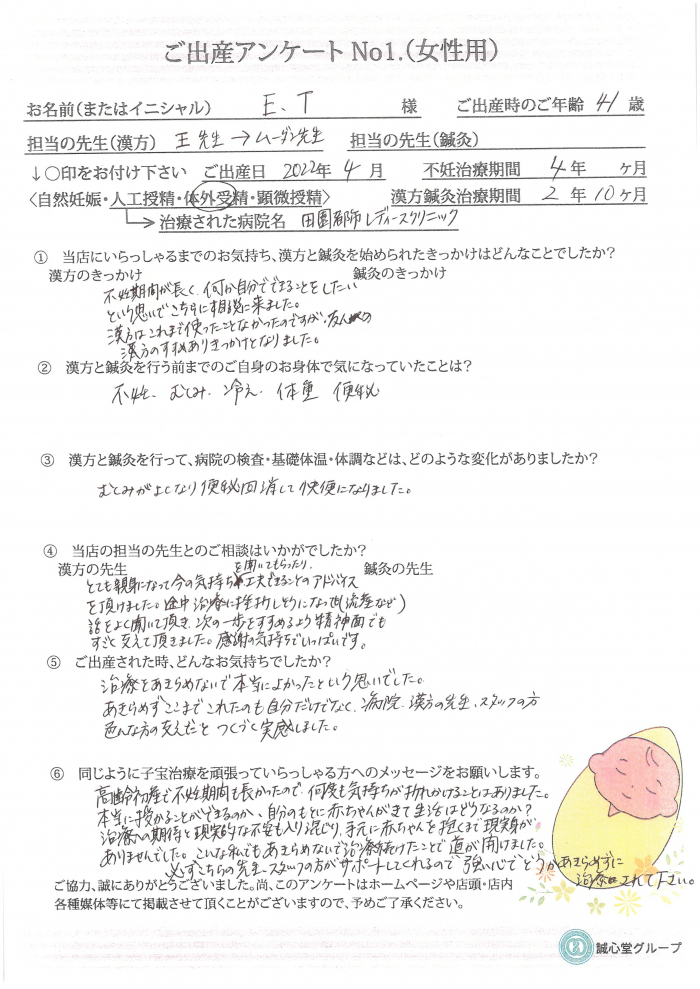 ご出産アンケート No1.(女性用)
お名前(またはイニシャル) E.T 様 ご出産時のご年齢 41 歳
担当の先生(漢方) 王先生→ムーダン先生 担当の先生(鍼灸)
↓○印をお付け下さい ご出産日 2022年 4月 不妊治療期間 4年 ヶ月
〈自然妊娠・人工授精・体外受精・顕微授精〉 漢方鍼灸治療期間 2年10ヶ月
治療された病院名 田園都市レディースクリニック
① 当店にいらっしゃるまでのお気持ち、漢方と鍼灸を始められたきっかけはどんなことでしたか?
漢方のきっかけ 鍼灸のきっかけ
不妊期間が長く、何か自分でできることをしたい
という思いでこちらに相談に来ました。
漢方はこれまで使ったことなかったのですが、友人の
漢方のすすめありきっかけとなりました。
② 漢方と鍼灸を行う前までのご自身のお身体で気になっていたことは?
不妊、むくみ、冷え、体重 便秘
③ 漢方と鍼灸を行って、病院の検査・基礎体温・体調などは、どのような変化がありましたか?
むくみがよくなり便秘回消して快便になりました。
④ 当店の担当の先生とのご相談はいかがでしたか?
漢方の先生 鍼灸の先生
とても親身になって今の気持ちを聞いてもらったり、工夫できることのアドバイス
を頂けました。途中治療に挫折しそうになっても(流産など)
話をよく聞いて頂き、次の一歩をすすめるよう精神面でも
すごく支えて頂きました。感謝の気持ちでいっぱいです。
⑤ ご出産された時、どんなお気持ちでしたか?
治療をあきらめないで本当によかったという思いでした。
あきらめずここまでこれたのも自分だけでなく、病院、漢方の先生、スタッフの方
色んな方の支えだと つくづく実感しました。
⑥ 同じように子宝治療を頑張っていらっしゃる方へのメッセージをお願いします。
高齢初産で不妊期間も長かったので、何度も気持ちが折れかけることはありました。
本当に授かることができるのか、自分のもとに赤ちゃんがきて生活はどうなるのか?
治療への期待と現実的な不安も入り混じり、手元に赤ちゃんを抱くまで現実が
ありませんでした。こんな私でもあきらめないで治療続けたことで道が開けました。
必ずこちらの先生、スタッフの方がサポートしてくれるので 強い心でどうかあきらめずに
治療されて下さい。
ご協力、誠にありがとうございました。尚、このアンケートはホームページや店頭・店内
各種媒体等にて掲載させて頂くことがございますので、予めご了承ください。
誠心堂グループ